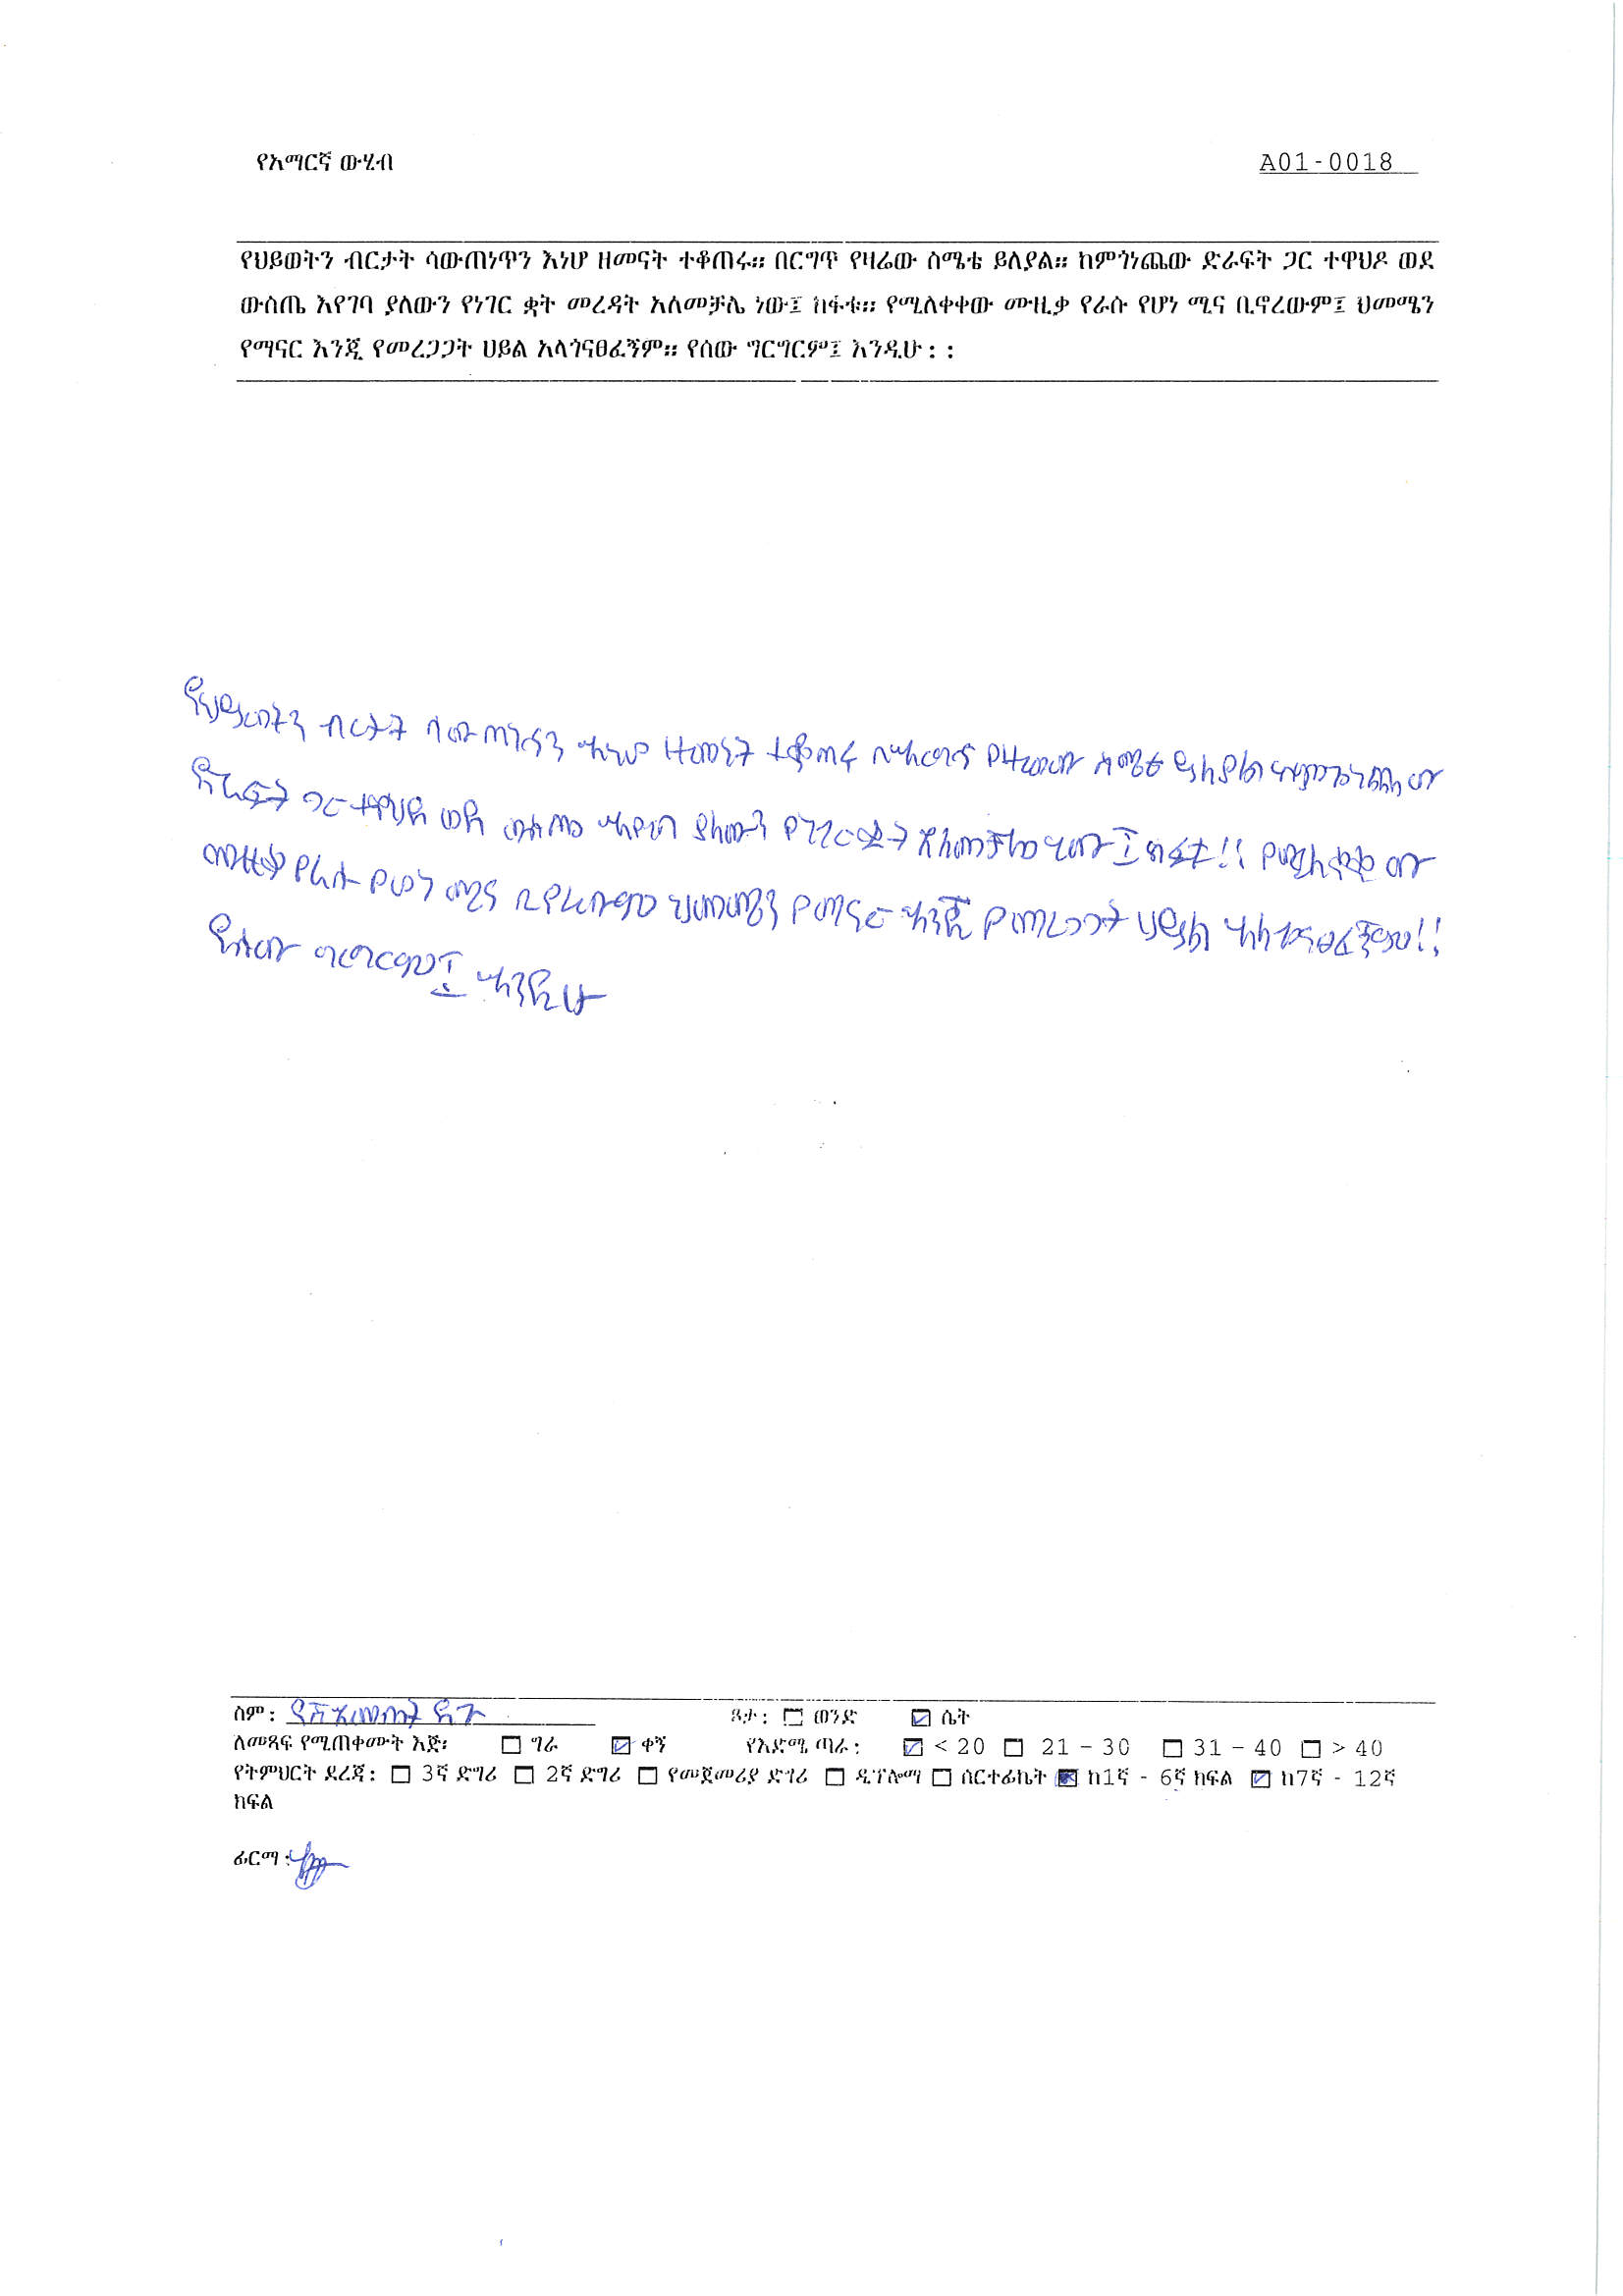 የአማርኛ ውሂብ A01-0018
የህይወትን ብርታት ሳውጠነጥን እነሆ ዘመናት ተቆጠሩ። በርግጥ የዛሬው ስሜቴ ይለያል። ከምጎነጨው ድራፍት ጋር ተዋህዶ ወደ
ውስጤ እየገባ ያለውን የነገር ቋት መረዳት አለመቻሌ ነው፤ ክፋቱ። የሚለቀቀው ሙዚቃ የራሱ የሆነ ሚና ቢኖረውም፤ ህመሜን
የማናር እንጂ የመረጋጋት ሀይል አላጎናፀፈኝም። የሰው ግርግርም፤ እንዲሁ::
የህይወትን ብርታት ሳውጠነጥን እነሆ ዘመናት ተቆጠሩ የዛሬው ስሜቴ ይለያል ከምጎነጨው
ድራፍት ጋር ተዋህዶ ወደ ውስጤ እየገባ ያለውን የነገር ቋት አለመቻሌ ነው፤ ክፋቱ!! የሚለቀቀው
ሙዚቃ የራሱ የሆነ ሚና ህመሜን የማናር እንጂ የመረጋጋት ሀይል አላጎናፀፈኝም!!
የሰው ግርግርም፤ እንዲሁ
ስም: ጾታ: ወንድ ሴት
ለመጻፍ የሚጠቀሙት እጅ፡ ግራ ቀኝ የእድሜ ጣራ: < 20 21 – 30 31 – 40 > 40
የትምህርት ደረጃ: 3ኛ ድግሪ 2ኛ ድግሪ የመጀመሪያ ድግሪ ዲፕሎማ ሰርተፊኬት ከ1ኛ - 6ኛ ክፍል ከ7ኛ - 12ኛ
ክፍል
ፊርማ: